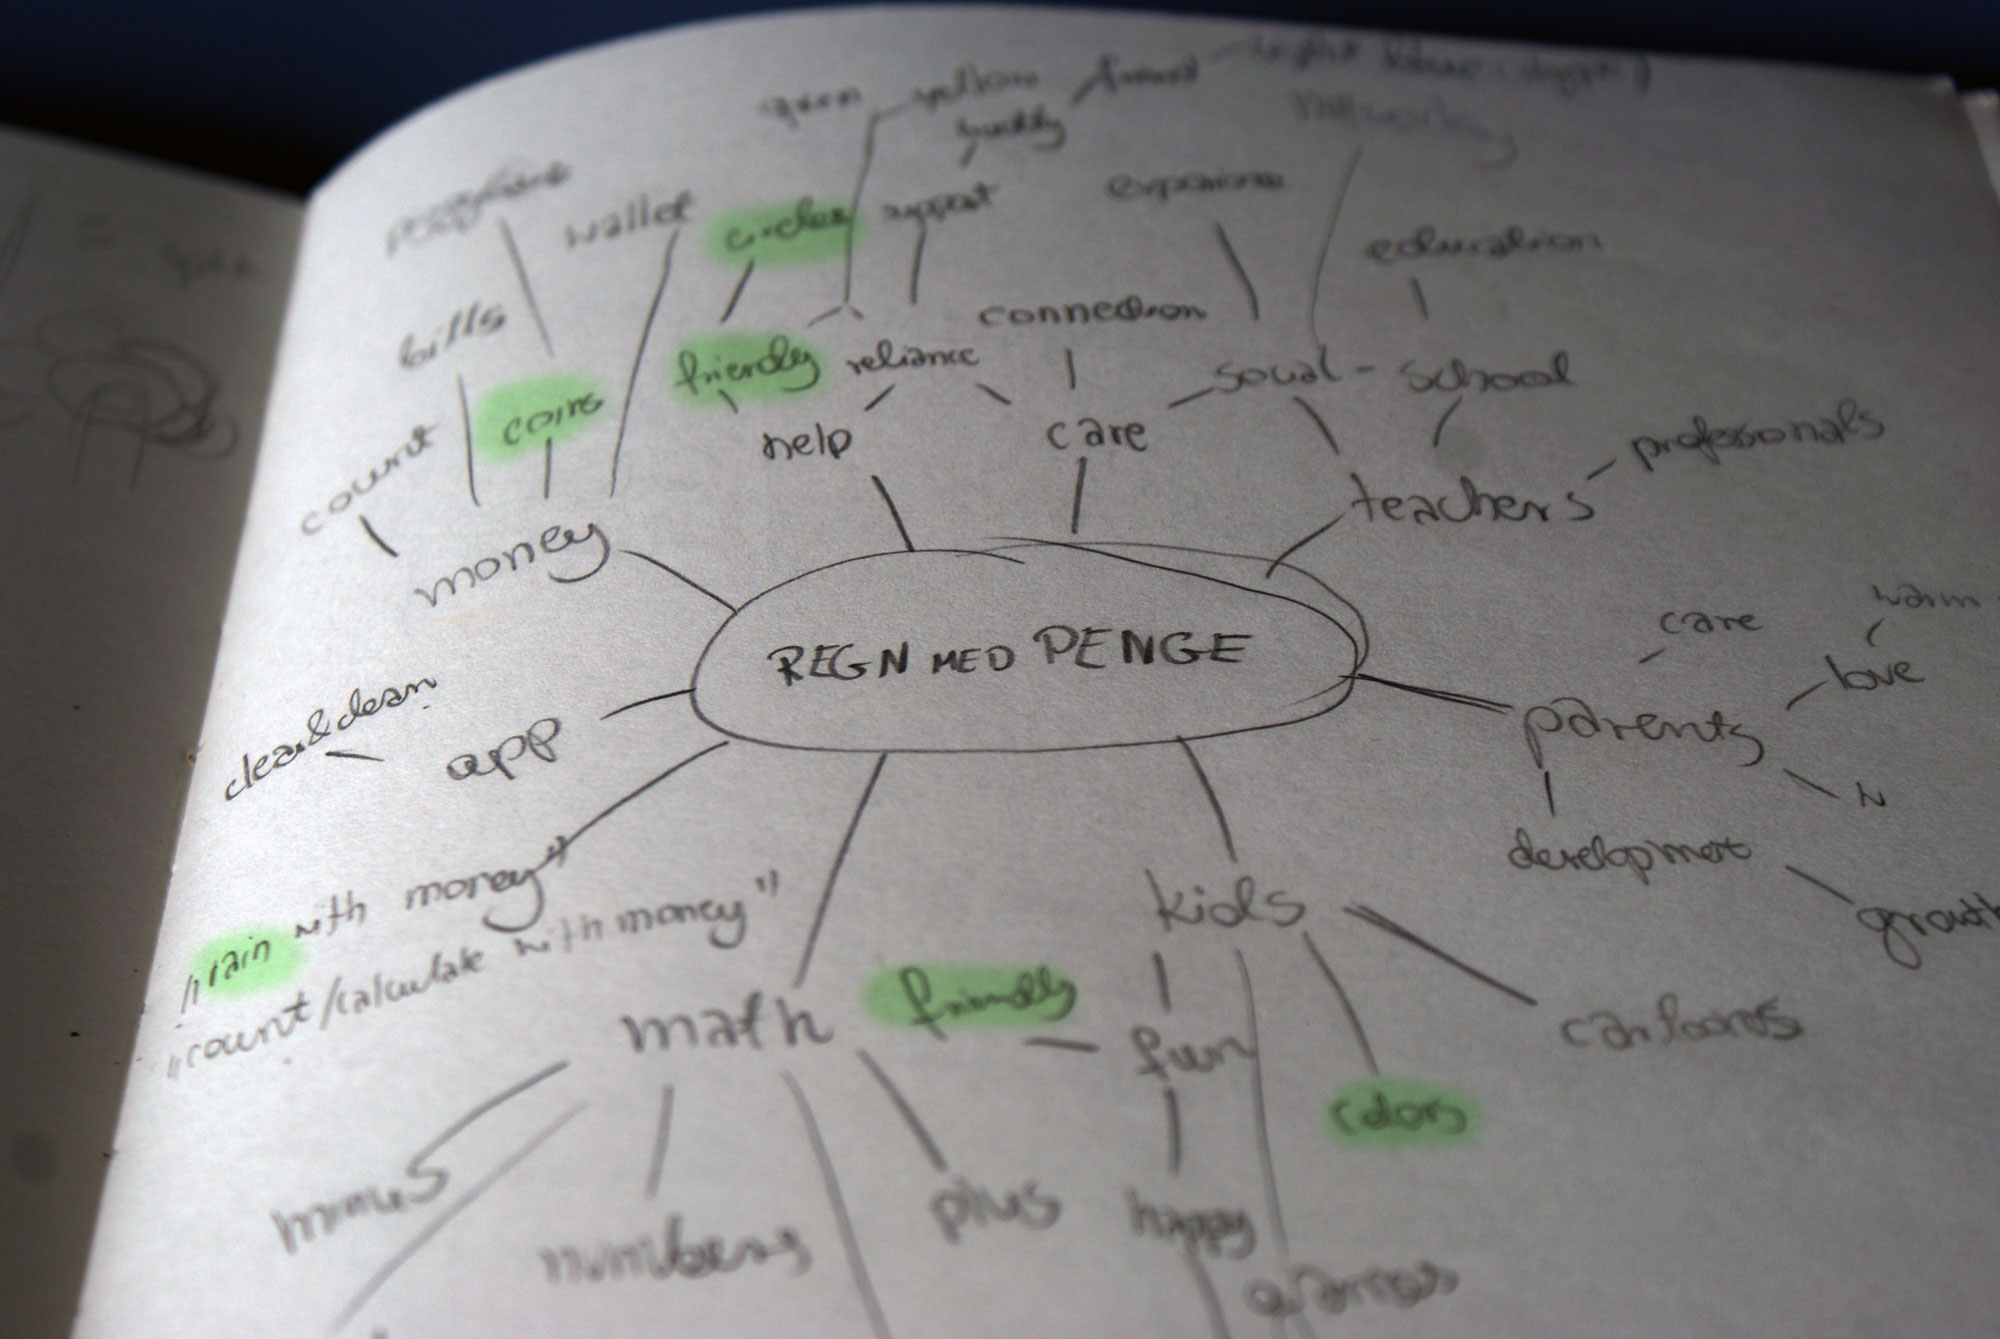 green
yellow
friend
buddy
wallet
circles
support
experience
education
bills
coins
friendly
reliance
connection
social - school
count
help
care
teachers
professionals
money
REGN MED PENGE
care
warm
love
parents
clear & clean
app
development
growth
"rain with money"
"count/calculate with money"
kids
math
friendly
fun
cartoons
colors
minus
numbers
plus
happy
games